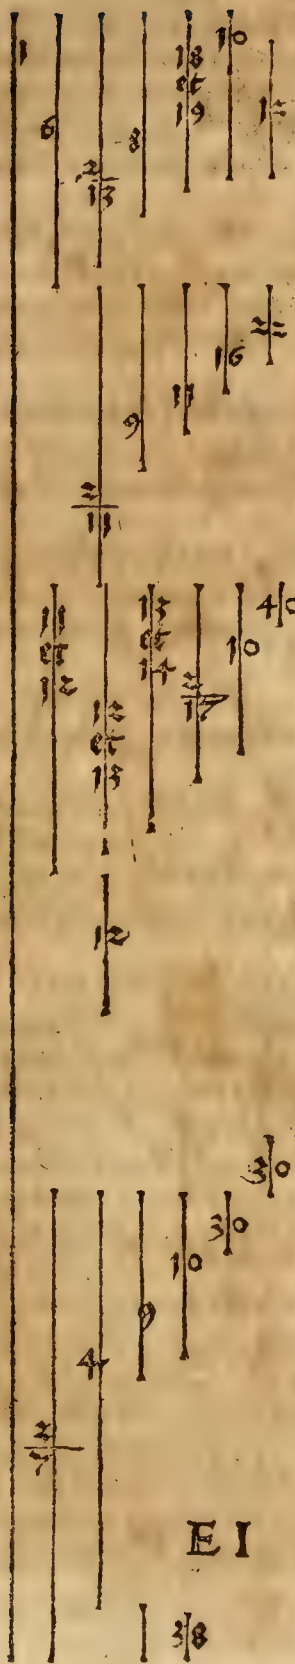 1 6 2/13 8 18 et 19 10 12
2/11 9 11 16 22
11 et 12 12 et 13 13 et 14 2/17 10 40
12
30
2/7 4 9 10 30
E I
38